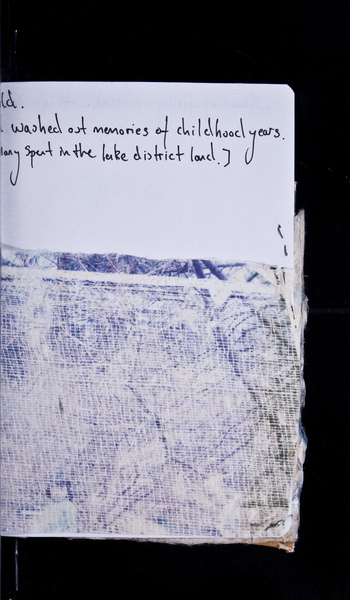 ld.
washed out memories of childhood years.
many spent in the lake district land.]